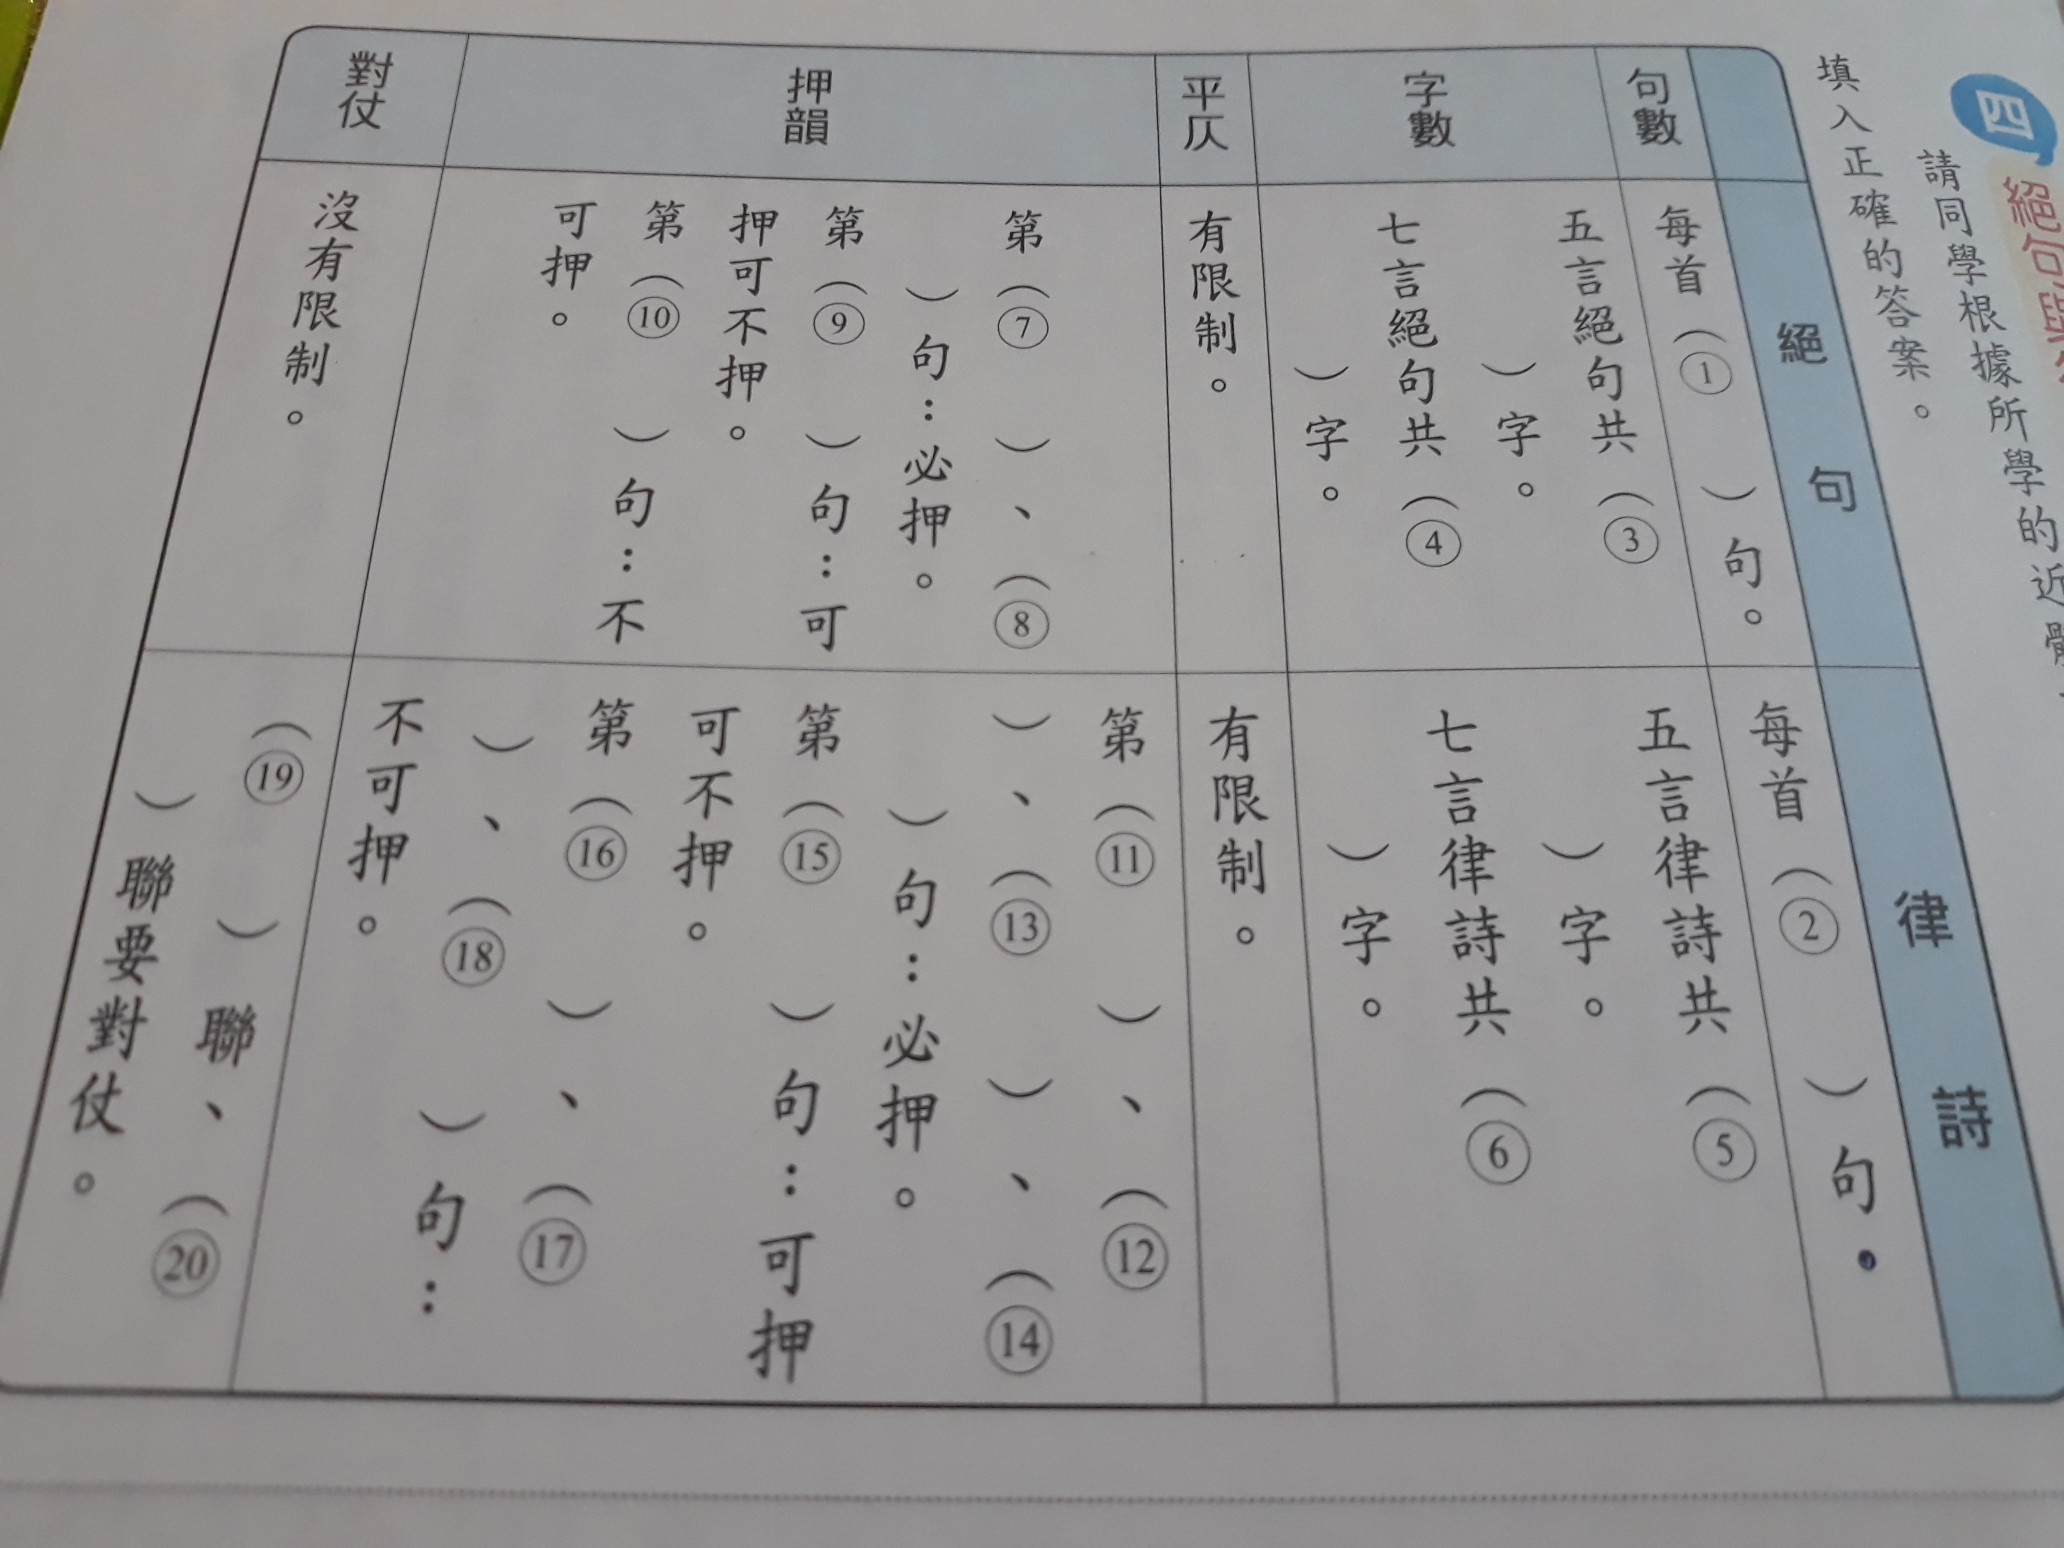 四
絕句與
請同學根據所學的近體
填入正確的答案。
絕句
律詩
句數
每首(①　)句。
每首(②　)句。
字數
五言絕句共(③
　)字。
七言絕句共(④
　)字。
五言律詩共(⑤
　)字。
七言律詩共(⑥
　)字。
平仄
有限制。
有限制。
押韻
第(⑦　)、(⑧
　)句：必押。
第(⑨　)句：可
押可不押。
第(⑩　)句：不
可押。
第(⑪　)、(⑫
　)、(⑬　)、(⑭
　)句：必押。
第(⑮　)句：可押
可不押。
第(⑯　)、(⑰
　)、(⑱　)句：
不可押。
對仗
沒有限制。
(⑲　)聯、(⑳
　)聯要對仗。